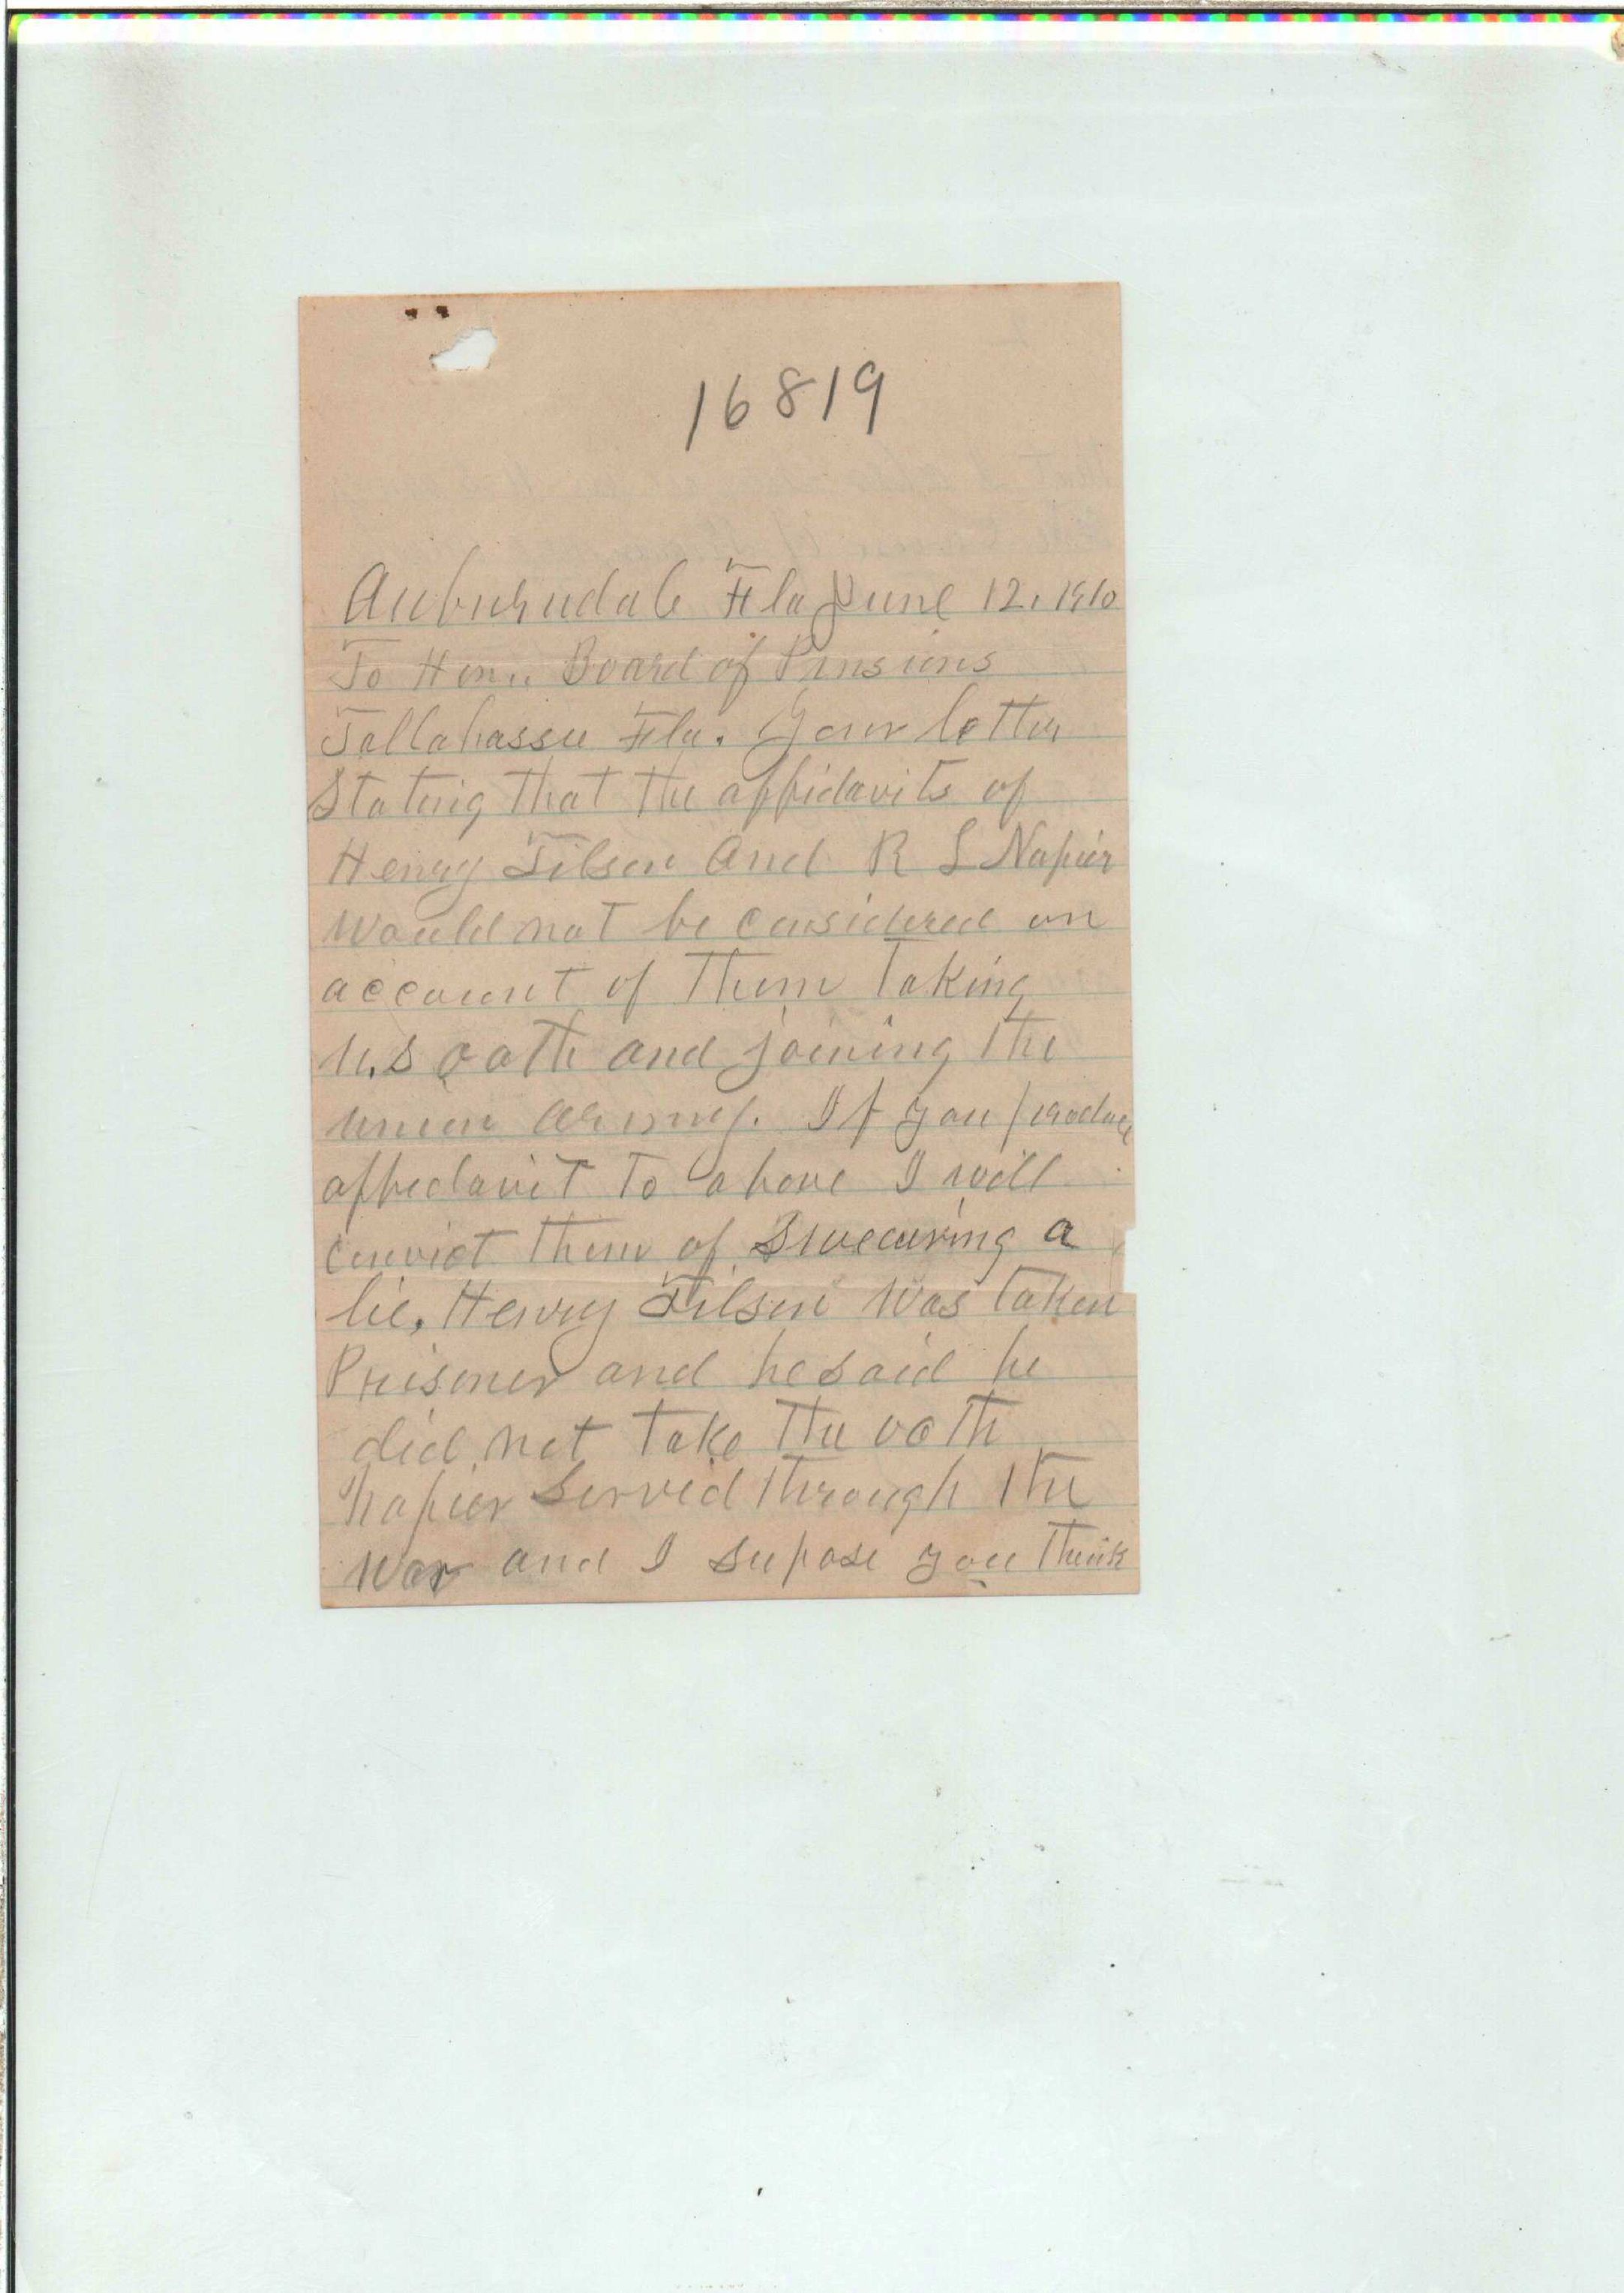 16819
Auburndale Fla June 12, 1910
To Hon.. Board of Pensions
Tallahassee Fla. Your letter
Stating that the affidavits of
Henry Tilson and R S Napier
would not be considered on
account of them taking
U.S oath and joining the
union army. If you produce
affedavit to above I will
convict them of Swearing a
lie, Henry Tilson was taken
Prisoner and he said he
did not take the oath
Napier Served through the
War and I supose you think